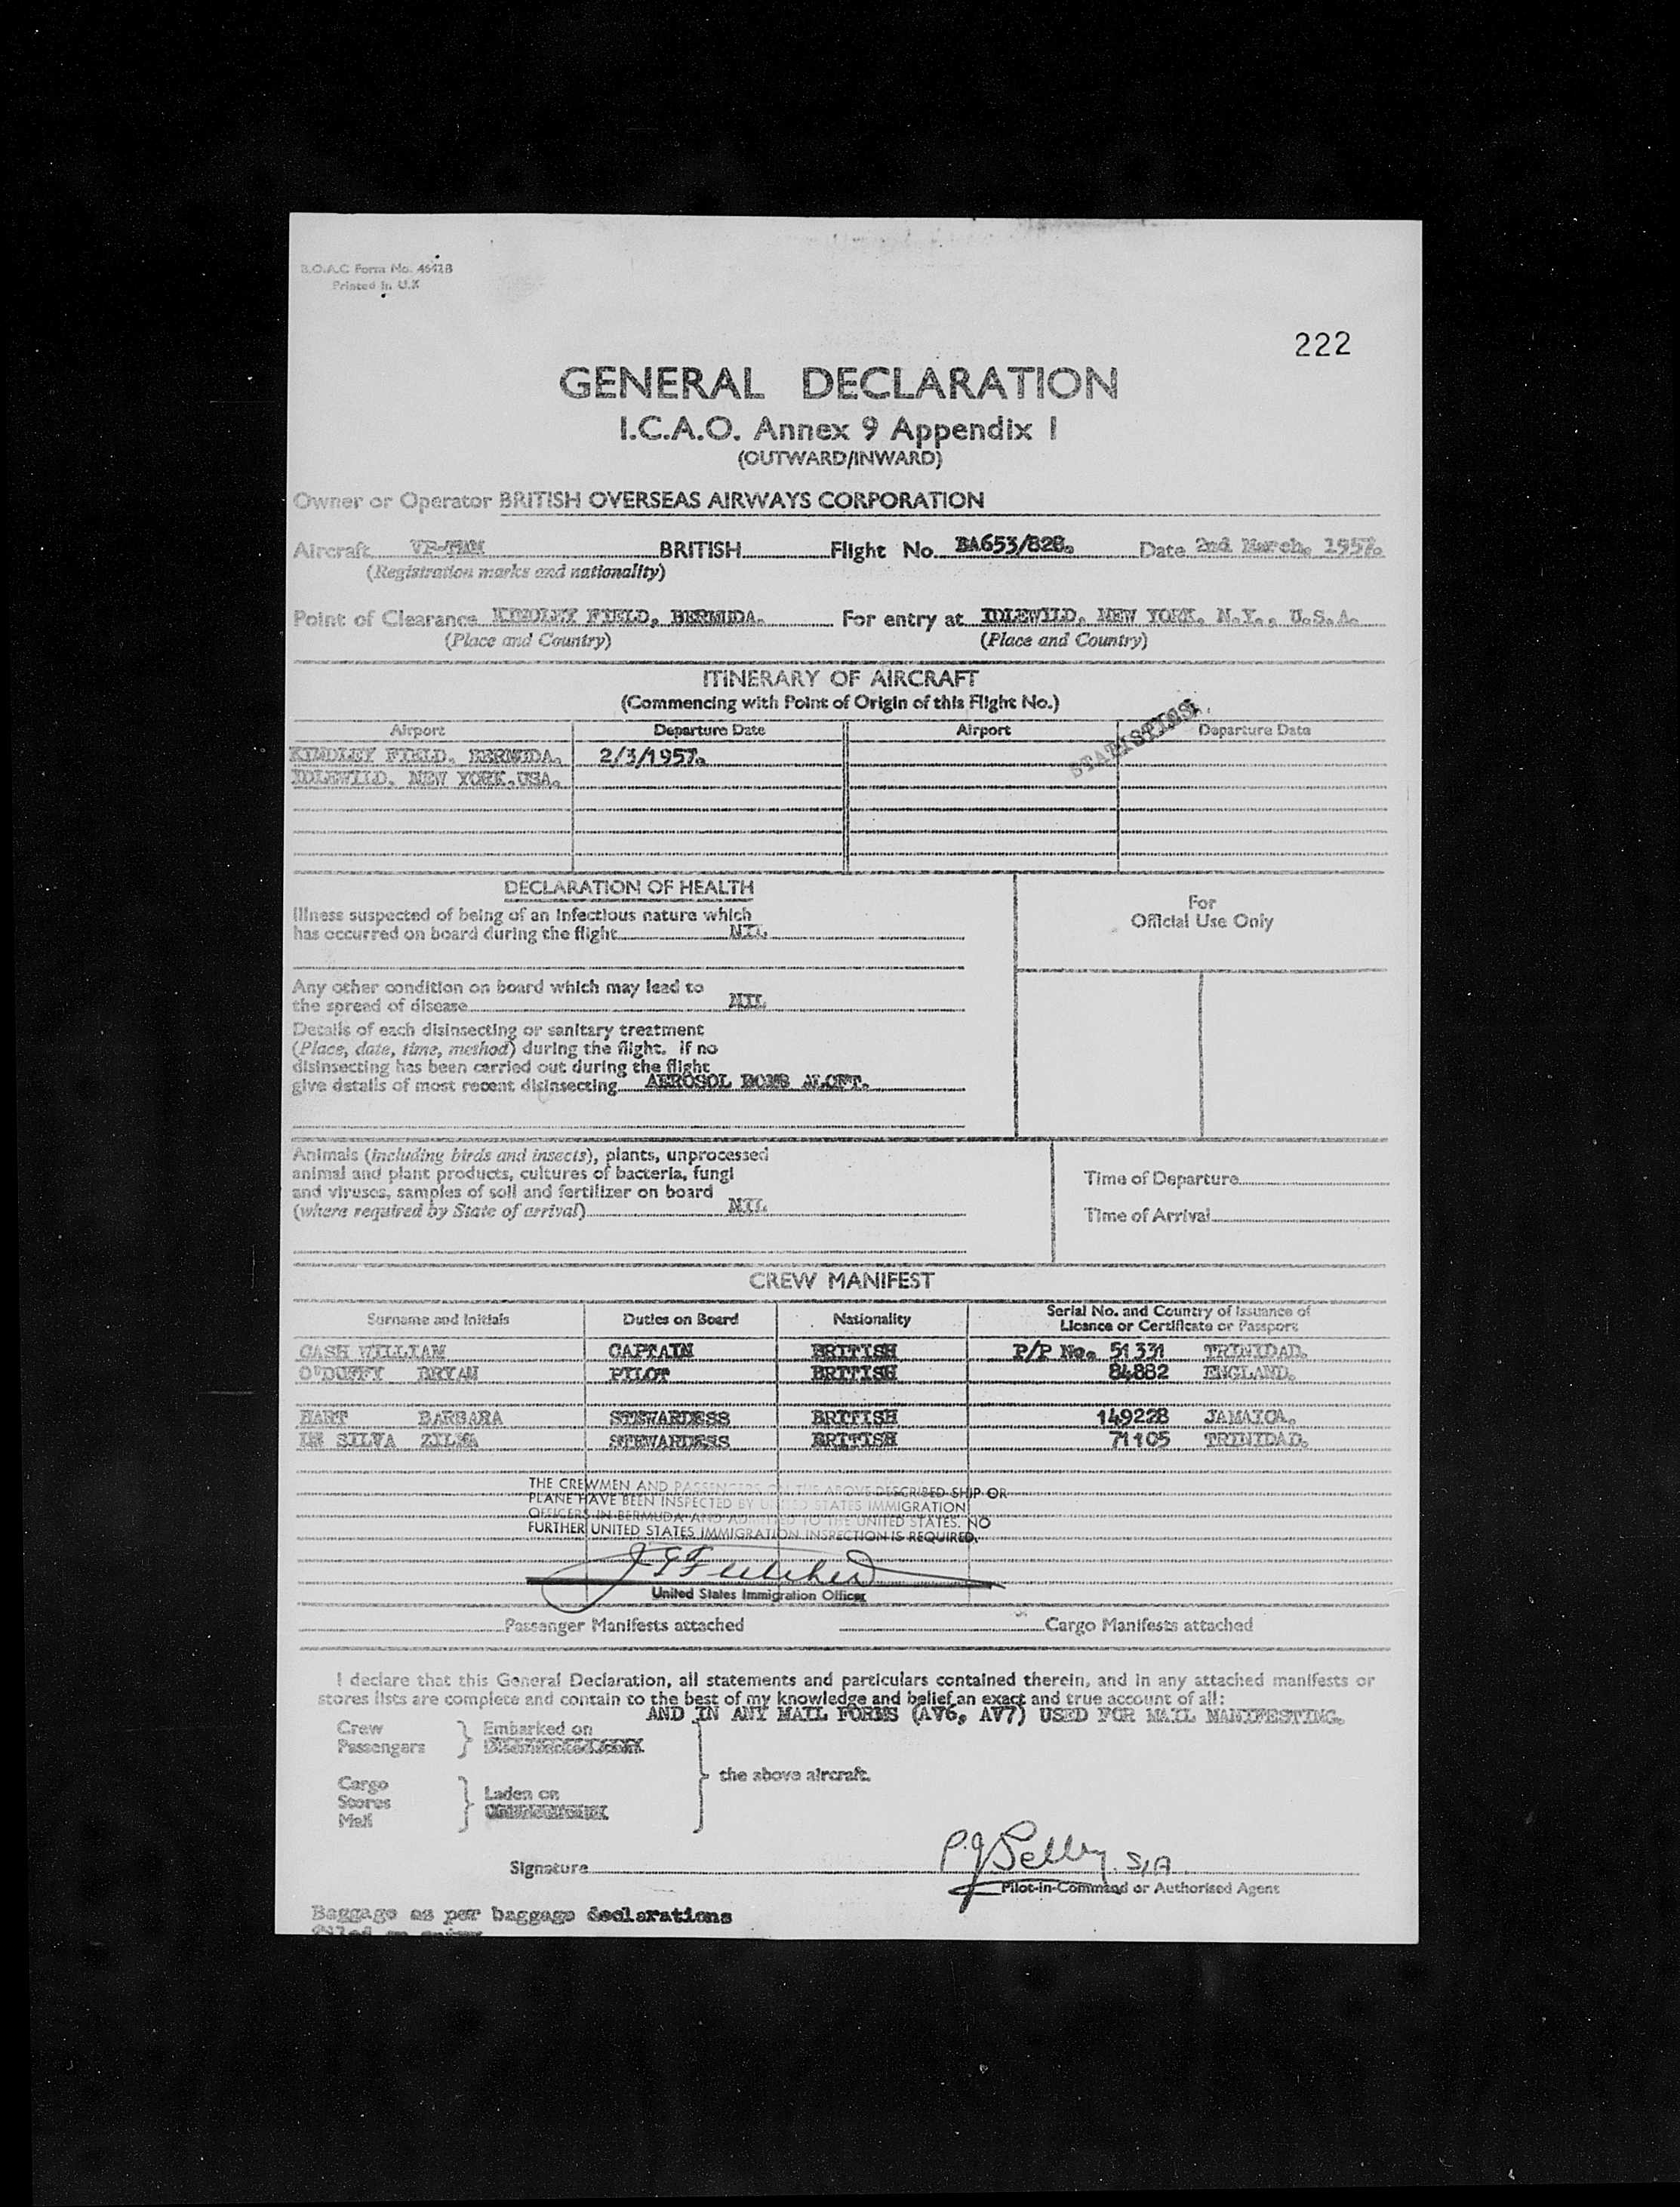 B.O.A.C Form No. 4642B
Printed in U.K
222
GENERAL DECLARATION
I.C.A.O. Annex 9 Appendix 1
(OUTWARD/INWARD)
Owner or Operator BRITISH OVERSEAS AIRWAYS CORPORATION
Aircraft BRITISH Flight No. BA653/828. Date 2nd March. 1957.
(Registration marks and nationality)
Point of Clearance KINDLEY FIELD, BERMUDA. For entry at IDLEWILD, NEW YORK, N.Y., U.S.A.
(Place and Country) (Place and Country)
ITINERARY OF AIRCRAFT
(Commencing with Point of Origin of this Flight No.)
Airport Departure Date Airport Departure Date
KINDLEY FIELD, BERMUDA. 2/3/1957.
IDLEWILD, NEW YORK.USA.
DECLARATION OF HEALTH
Illness suspected of being of an infectious nature which
has occurred on board during the flight NIL
Any other condition on board which may lead to
the spread of disease NIL
Details of each disinsecting or sanitary treatment
(Place, date, time, method) during the flight. If no
disinsecting has been carried out during the flight
give details of most recent disinsecting AEROSOL BOMB ALOFT.
For
Official Use Only
Animals (including birds and insects), plants, unprocessed
animal and plant products, cultures of bacteria, fungi
and viruses, samples of soil and fertilizer on board
(where required by State of arrival) NIL
Time of Departure
Time of Arrival
CREW MANIFEST
Surname and Initials Duties on Board Nationality Serial No. and Country of Issuance of
Licence or Certificate or Passport
CASH WILLIAM CAPTAIN BRITISH P/P No. 51331 TRINIDAD.
O'DUFFY BRYAN PILOT BRITISH 84882 ENGLAND.
HART BARBARA STEWARDESS BRITISH 149228 JAMAICA.
DE SILVA ZILMA STEWARDESS BRITISH 71105 TRINIDAD.
THE CREWMEN AND PASSENGERS ON THE ABOVE DESCRIBED SHIP OR
PLANE HAVE BEEN INSPECTED BY UNITED STATES IMMIGRATION
OFFICERS IN BERMUDA AND ADMITTED TO THE UNITED STATES. NO
FURTHER UNITED STATES IMMIGRATION INSPECTION IS REQUIRED.
United States Immigration Officer
Passenger Manifests attached Cargo Manifests attached
I declare that this General Declaration, all statements and particulars contained therein, and in any attached manifests or
stores lists are complete and contain to the best of my knowledge and belief an exact and true account of all:
AND IN ANY MAIL FORMS (AV6, AV7) USED FOR MAIL MANIFESTING.
Crew
Passengers
Embarked on
Cargo
Stores
Mail
Laden on
the above aircraft.
Signature
Pilot-in-Command or Authorised Agent
Baggage as per baggage declarations
filed on entry